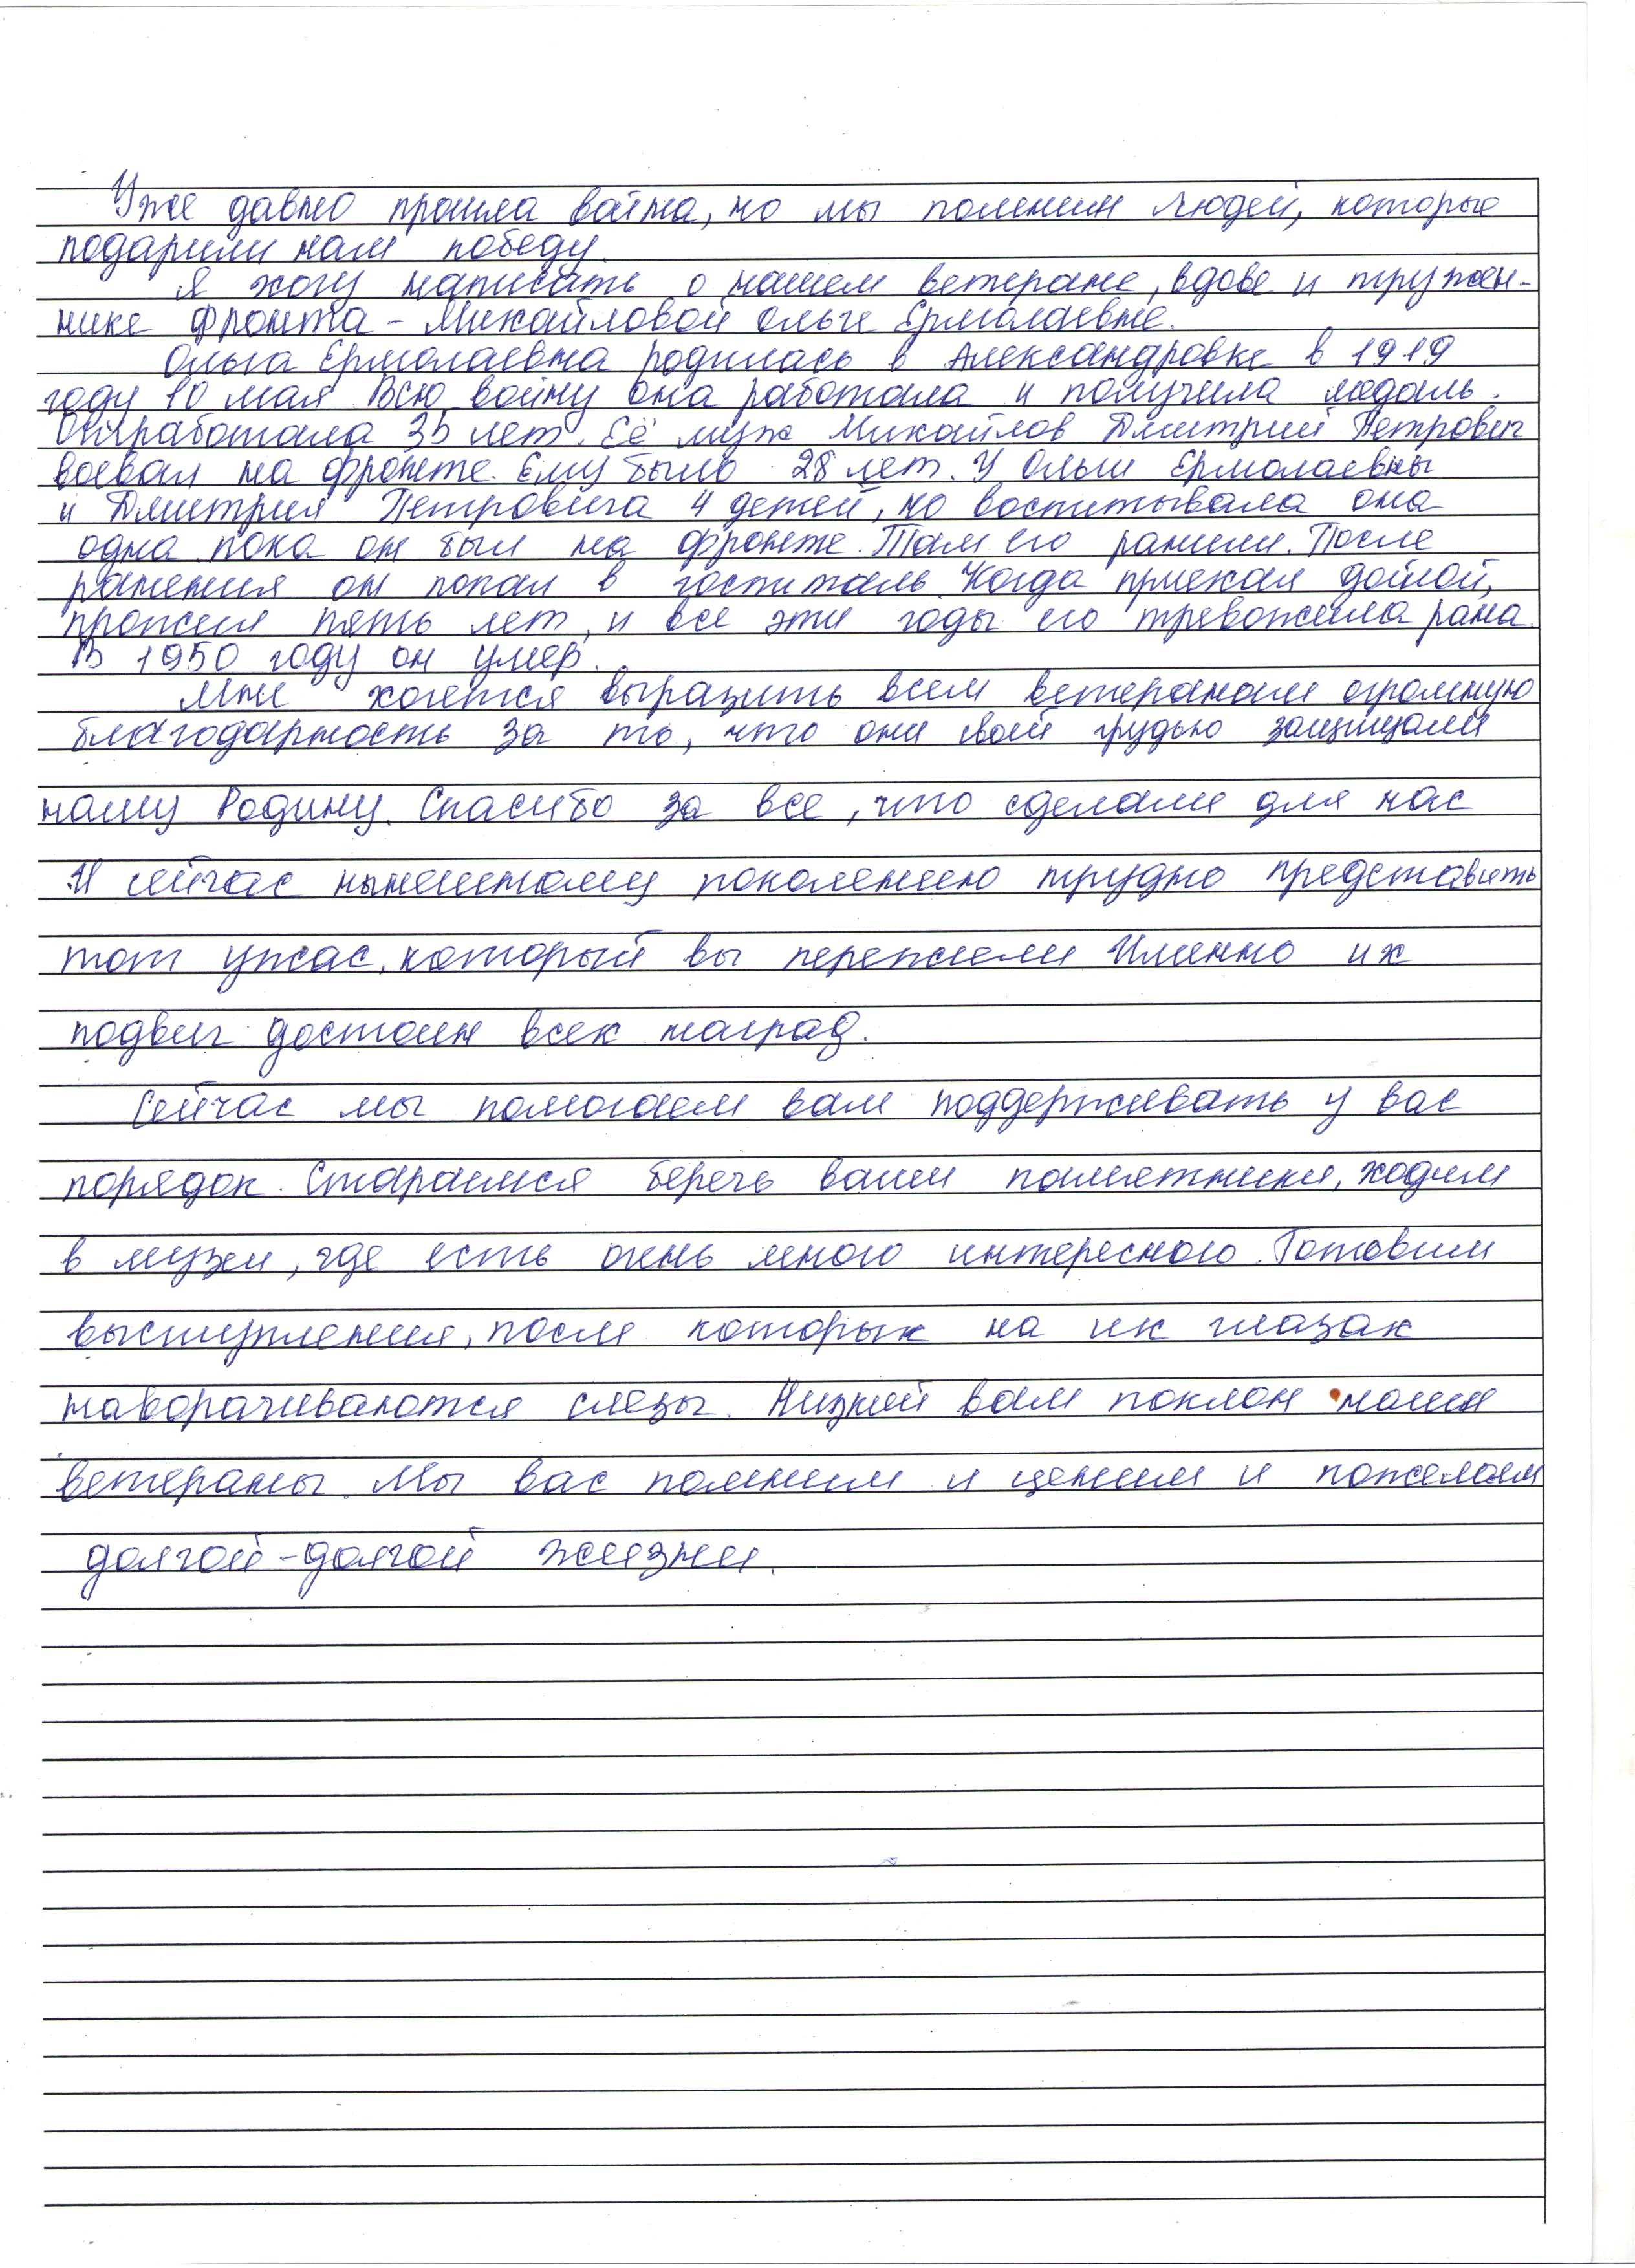 Уже давно прошла война, но мы помним людей, которые
подарили нам победу.
Я хочу написать о нашем ветеране, вдове и тружен-
нике фронта - Михайловой Ольге Ермолаевне.
Ольга Ермолаевна родилась в Александровке в 1919
году 10 мая Всю войну она работала и получила медаль.
Отработала 35 лет. Её муж Михайлов Дмитрий Петрович
воевал на фронте. Ему было 28 лет. У Ольги Ермолаевны
и Дмитрия Петровича 4 детей, но воспитывала она
одна пока он был на фронте. Там его ранили. После
ранения он попал в госпиталь. Когда приехал домой,
прожил пять лет, и все эти годы его тревожила рана.
В 1950 году он умер.
Мне хочется выразить всем ветеранам огромную
благодарность за то, что они свой грудью защищали
нашу Родину. Спасибо за все, что сделали для нас
И сейчас нынешнему поколению трудно представить
тот ужас, который вы пережили Именно их
подвиг достоин всех наград.
Сейчас мы помогаем вам поддерживать у вас
порядок. Стараемся беречь ваши памятники, ходим
в музеи, где есть очень много интересного. Готовим
выступления, после которых на их глазах
наворачиваются слезы. Низкий вам поклон наши
ветераны. Мы вас помним и ценим и пожелаем
долгой-долгой жизни.